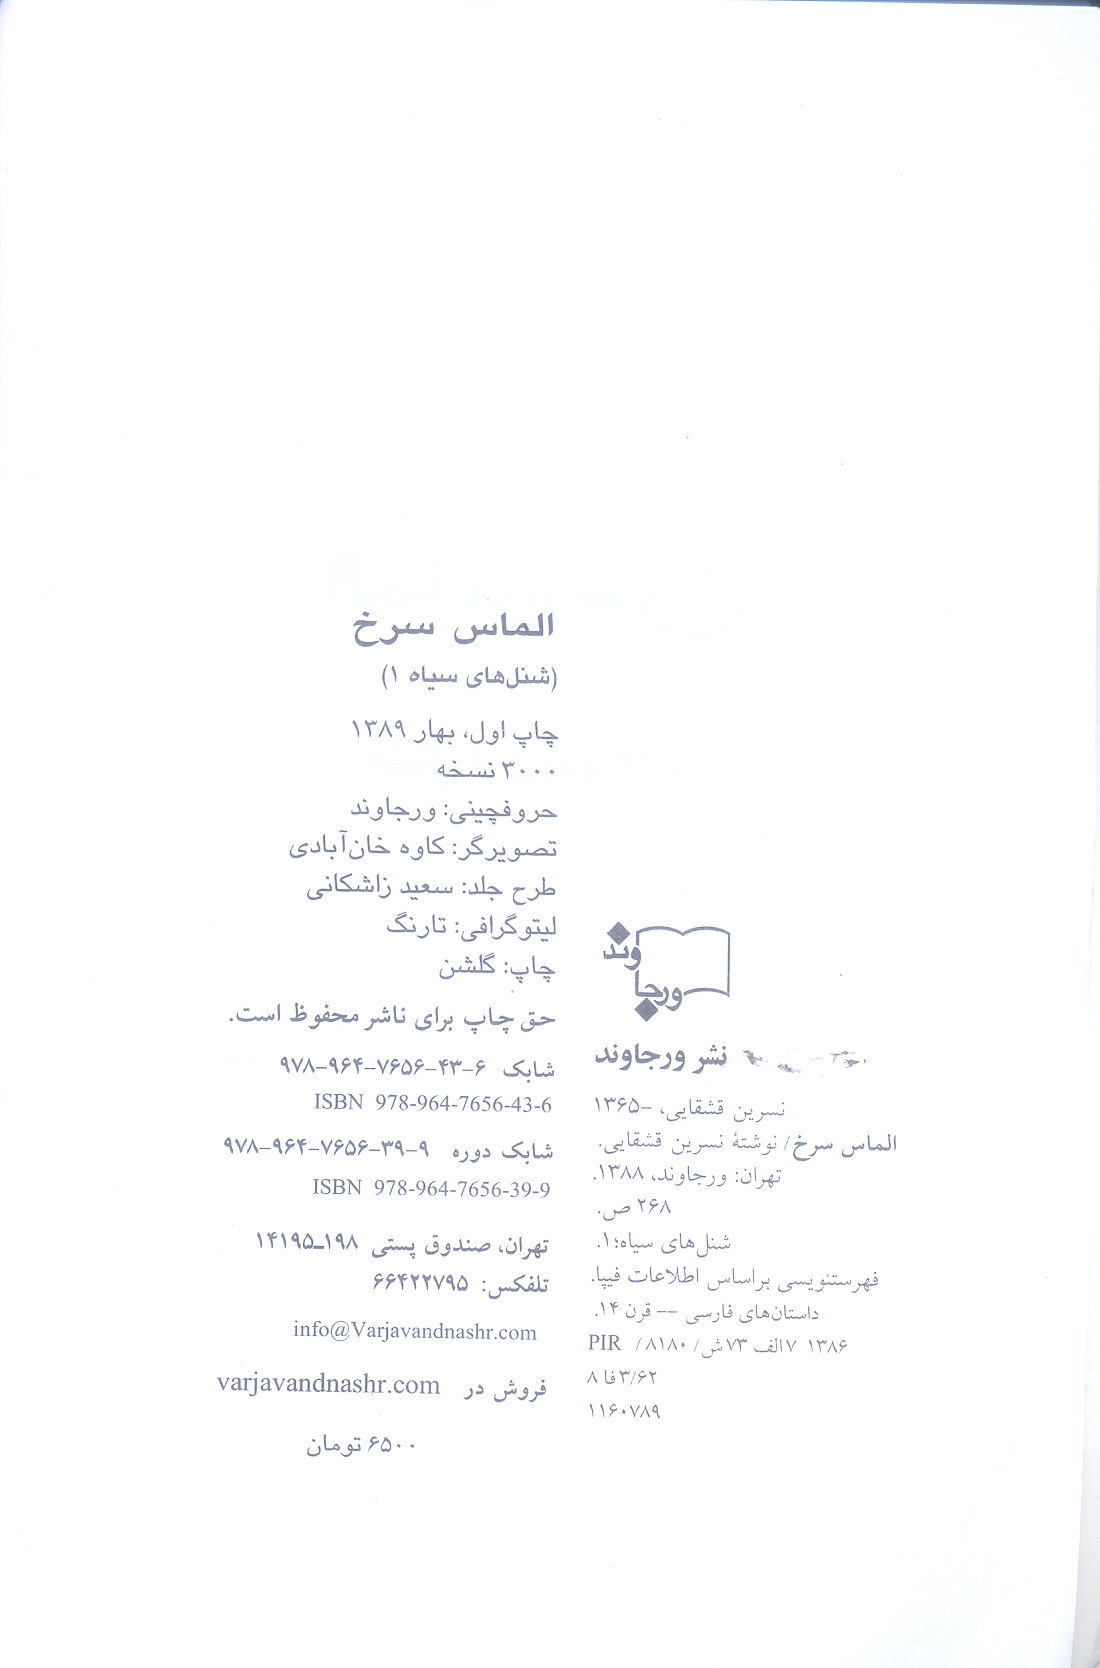 الماس سرخ
(شنل‌های سیاه ۱)
چاپ اول، بهار ۱۳۸۹
۳۰۰۰ نسخه
حروفچینی: ورجاوند
تصویرگر: کاوه خان‌آبادی
طرح جلد: سعید زاشکانی
لیتوگرافی: تارنگ
چاپ: گلشن
حق چاپ برای ناشر محفوظ است.
شابک ۶-۴۳-۷۶۵۶-۹۶۴-۹۷۸
ISBN 978-964-7656-43-6
شابک دوره ۹-۳۹-۷۶۵۶-۹۶۴-۹۷۸
ISBN 978-964-7656-39-9
تهران، صندوق پستی ۱۹۸ـ۱۴۱۹۵
تلفکس: ۶۶۴۲۲۷۹۵
info@Varjavandnashr.com
فروش در varjavandnashr.com
۶۵۰۰ تومان
ورجاوند
نشر ورجاوند
نسرین قشقایی، -۱۳۶۵
الماس سرخ/ نوشتهٔ نسرین قشقایی.
تهران: ورجاوند، ۱۳۸۸.
۲۶۸ ص.
شنل‌های سیاه؛۱.
فهرستنویسی براساس اطلاعات فیپا.
داستان‌های فارسی -- قرن ۱۴.
۱۳۸۶ ۷الف ۷۳ش/ ۸۱۸۰/ PIR
۳/۶۲فا ۸
۱۱۶۰۷۸۹